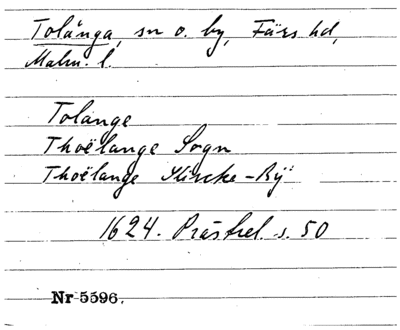 Tolånga, sn o. by, Färs hd,
Malm. l.
Tolange
Thoëlange Sogn
Thoëlange Kircke-Bÿ
1624. Prästrel. s. 50
Nr 5596.